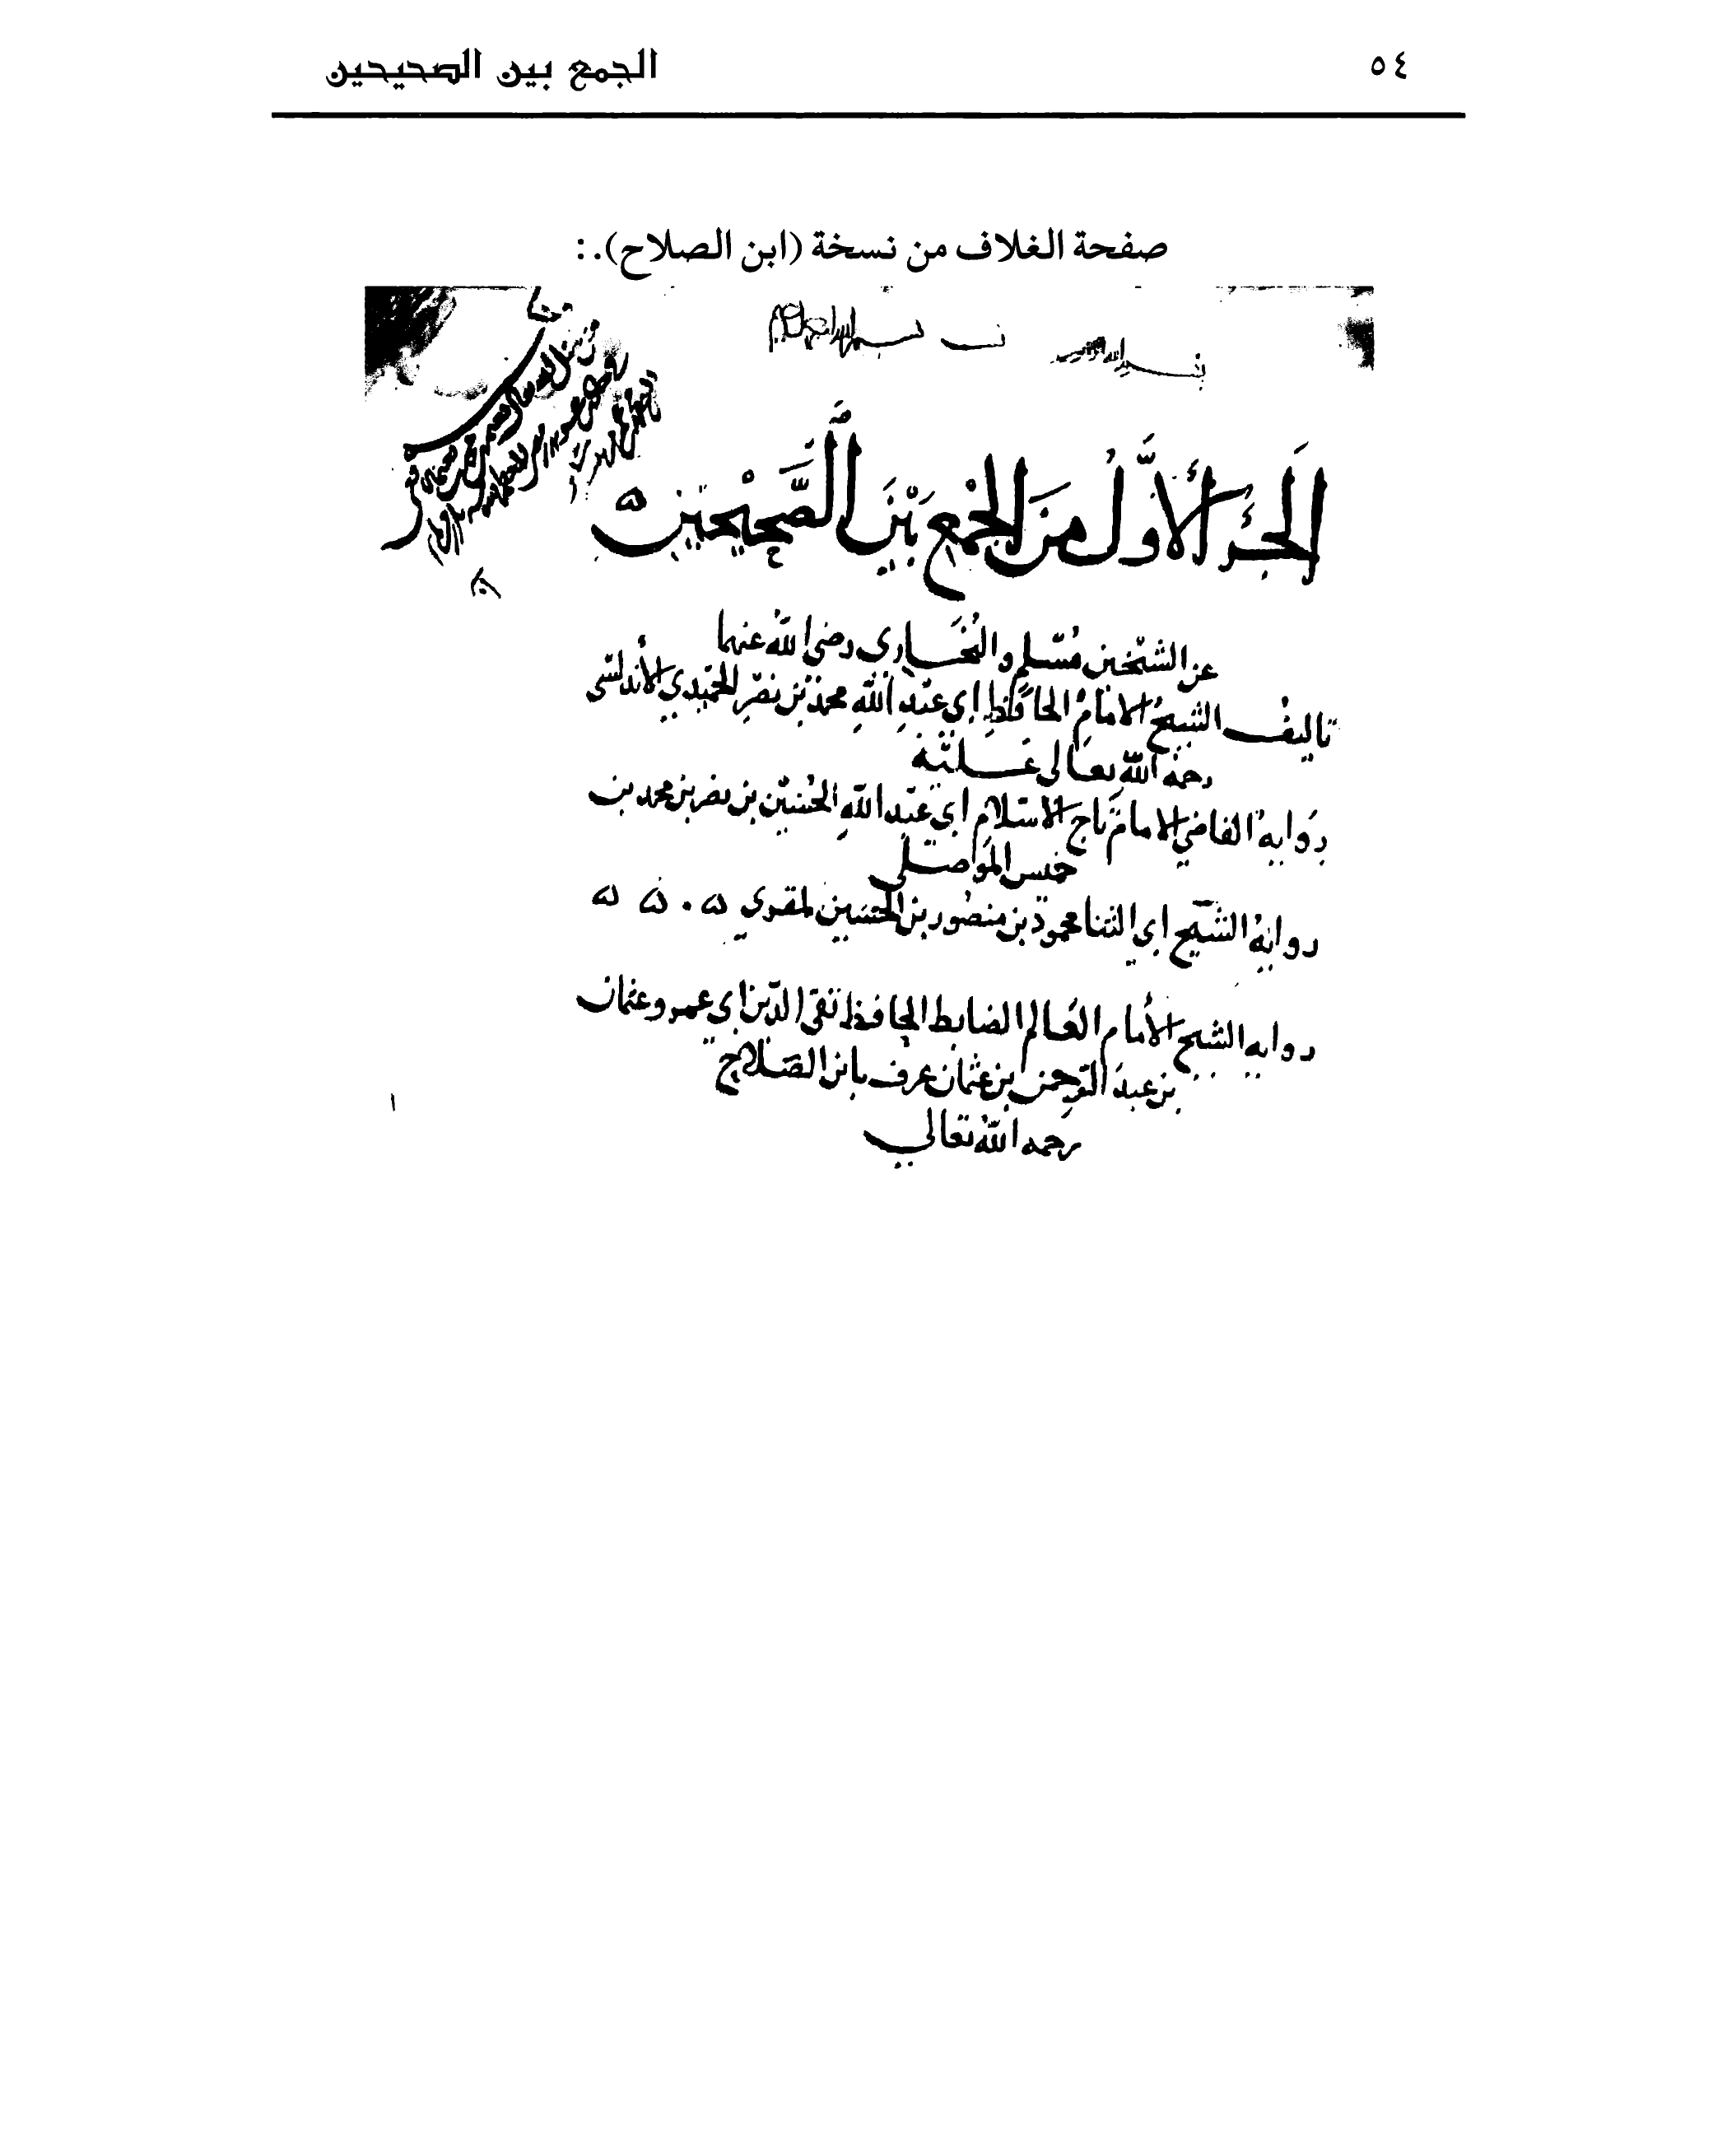 ٥٤ الجمع بين الصحيحين
صفحة الغلاف من نسخة (ابن الصلاح).:
الجزء الأول من الجمع بين الصحيحين
عن الشيخين مسلم والبخاري رضي الله عنهما
تاليف الشيخ الامام الحافظ ابي عبد الله محمد بن نصر الحميدي الأندلسي
رحمة الله تعالى عليه
رواية القاضي الامام تاج الاسلام ابي عبد الله الحسين بن نصر بن محمد بن
خميس الموصلي
رواية الشيخ ابي الثنا محمود بن منصور بن الحسين لمقري
رواية الشيخ الأمام العالم الضابط الحافظ تقي الدين ابي عمرو عثمان
بن عبد الرحمن بن عثمان عرف بابن الصلاح
رحمه الله تعالي